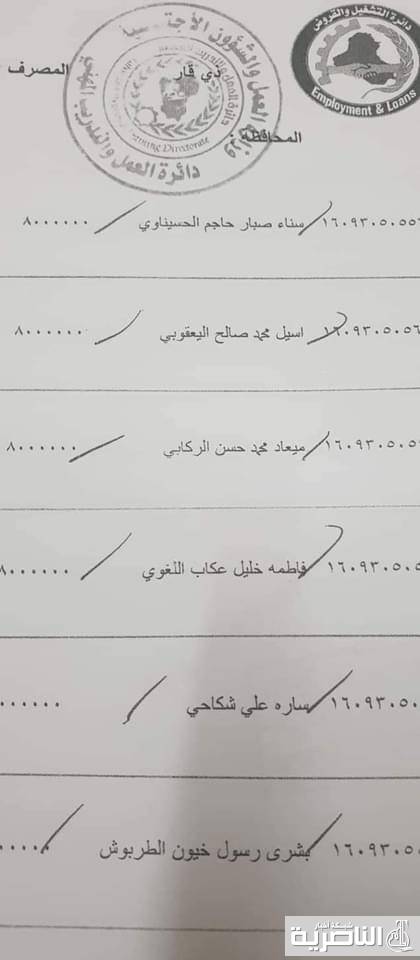 دائرة التشغيل والقروض
Employment & Loans
وزارة العمل والشؤون الأجتماعية
دائرة العمل والتدريب المهني
Training Directorate
ذي قار
المصرف
المحافظة :
١٦٠٩٣٠٥٠٥٥ سناء صبار حاجم الحسيناوي ٨٠٠٠٠٠٠
١٦٠٩٣٠٥٠٥٦ اسيل محمد صالح اليعقوبي ٨٠٠٠٠٠٠
١٦٠٩٣٠٥٠٥ ميعاد محمد حسن الركابي ٨٠٠٠٠٠٠
١٦٠٩٣٠٥٠٥ فاطمه خليل عكاب اللغوي ٨٠٠٠٠٠٠
١٦٠٩٣٠٥٠ ساره علي شكاحي ٠٠٠٠٠٠
١٦٠٩٣٠٥٠ بشرى رسول خيون الطربوش ٠٠٠٠٠
شبكة أخبار
الناصرية